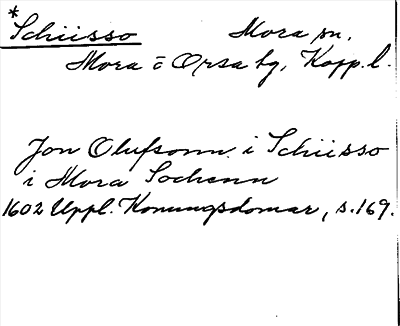 *
Schiisso Mora sn.
Mora o Orsa tg, Kopp. l.
Jon Olufsonn i Schiisso
i Mora Sochenn
1602 Uppl. Konungsdomar, s. 169.